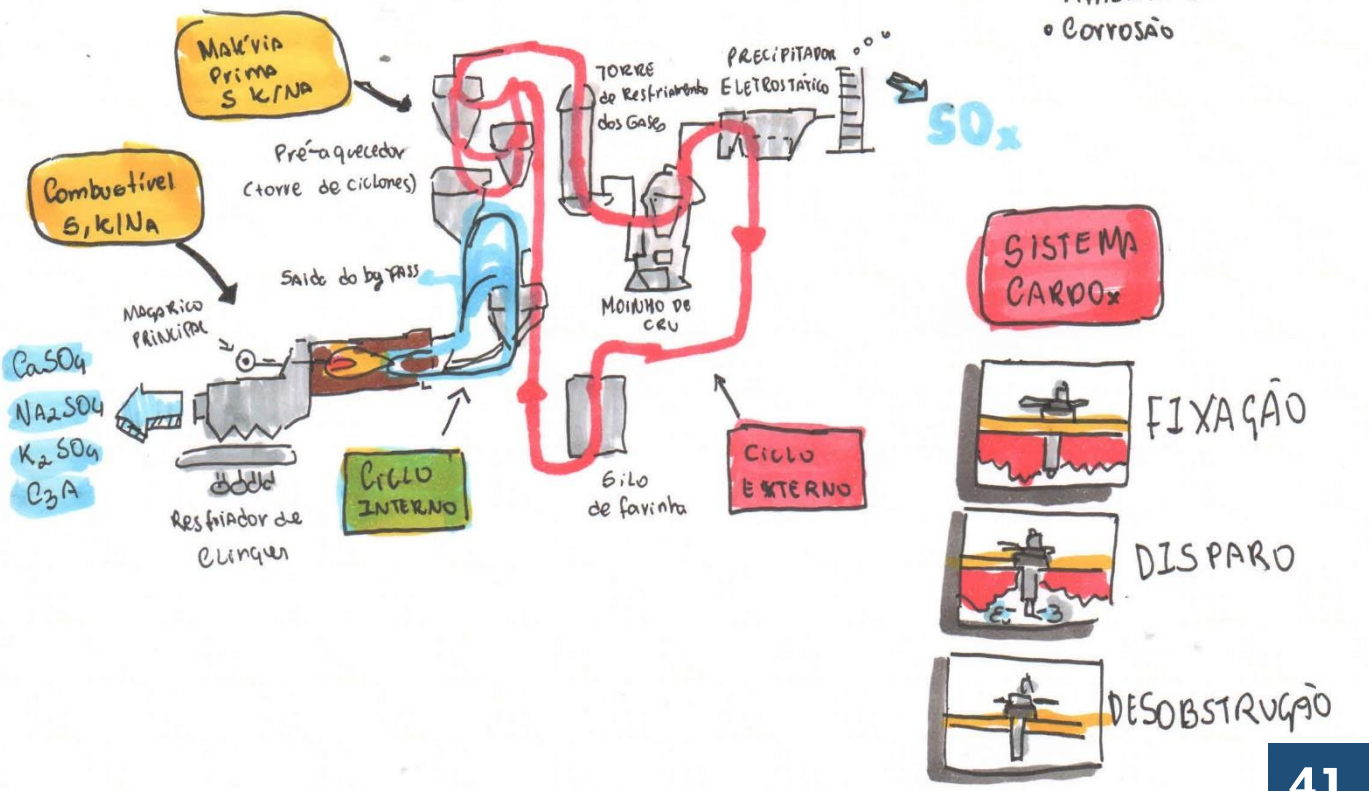 • Corrosão
Matéria
Prima
S K/NA
Combustível
S, K/NA
Pré-aquecedor
(torre de ciclones)
TORRE
de Resfriamento
dos Gases
PRECIPITADOR
ELETROSTÁTICO
SOx
Saída do by PASS
MAÇARICO
PRINCIPAL
MOINHO DE
CRU
CaSO4
NA2SO4
K2SO4
C3A
Resfriador de
Clinquer
CICLO
INTERNO
Silo
de farinha
CICLO
EXTERNO
SISTEMA
CARDOx
FIXAÇÃO
DISPARO
DESOBSTRUÇÃO
41